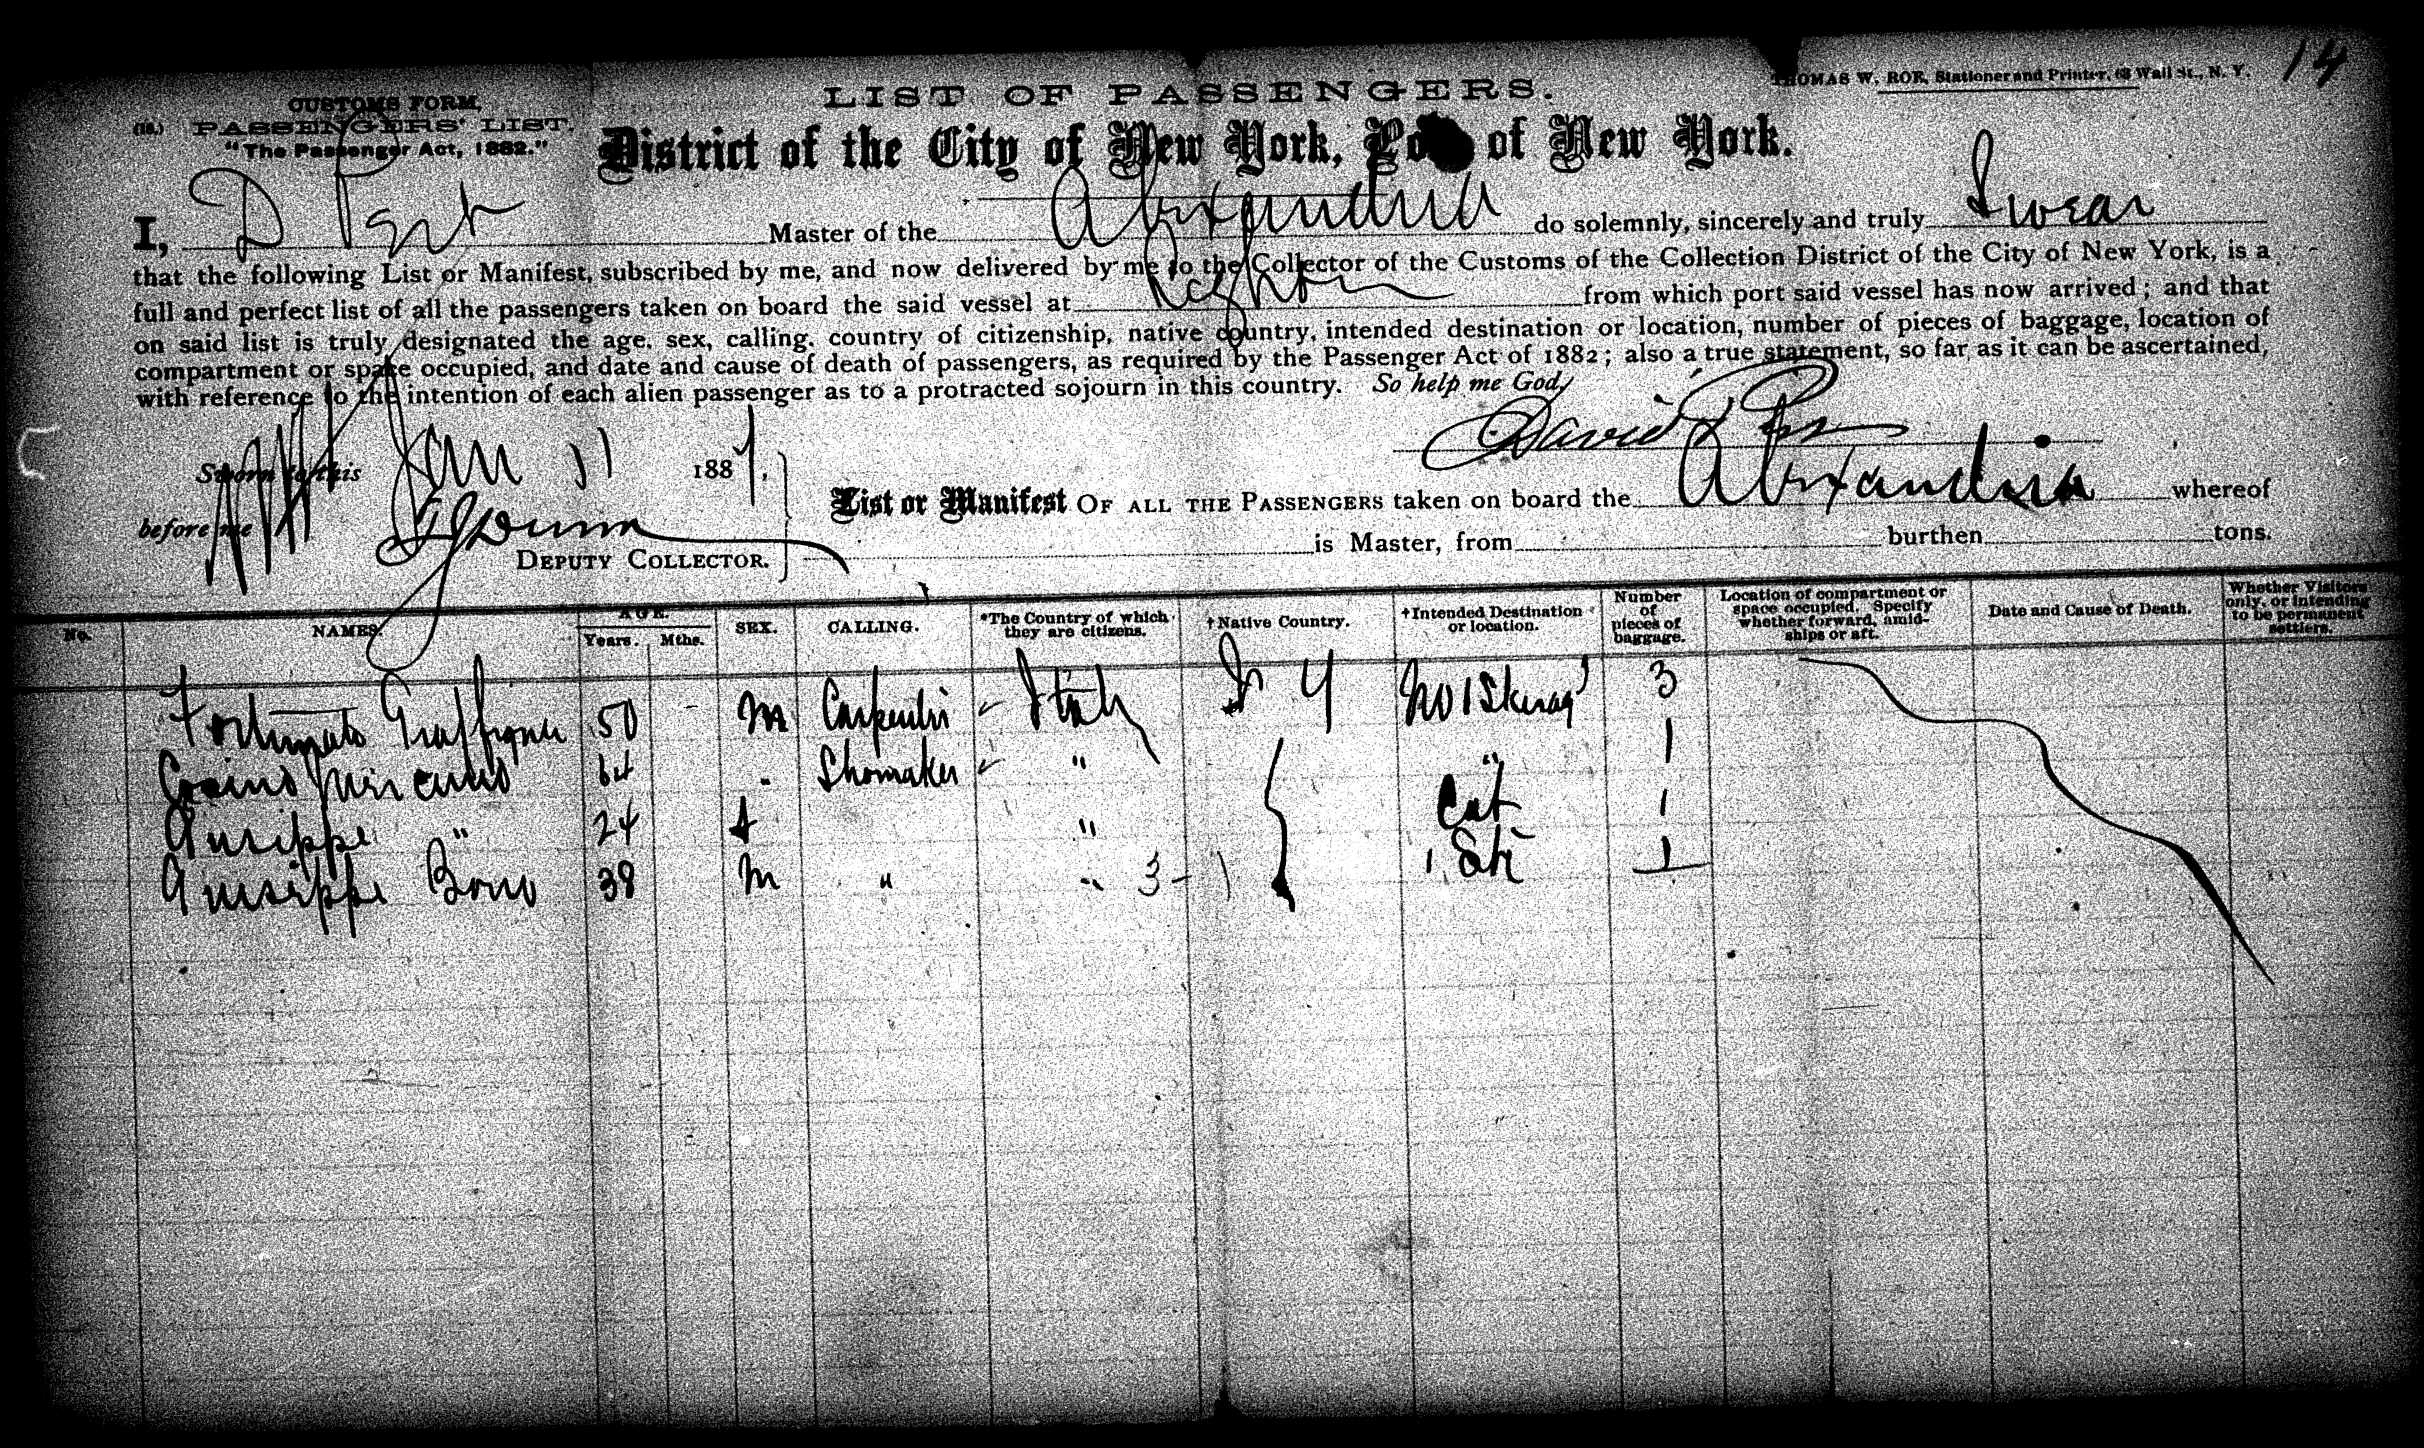 14
THOMAS W. ROE, Stationer and Printer, 63 Wall St., N. Y.
LIST OF PASSENGERS.
CUSTOMS FORM,
(18.) PASSENGERS' LIST.
"The Passenger Act, 1882."
District of the City of New York, Po of New York.
I, D Master of the Alexandria do solemnly, sincerely and truly Swear
that the following List or Manifest, subscribed by me, and now delivered by me to the Collector of the Customs of the Collection District of the City of New York, is a
full and perfect list of all the passengers taken on board the said vessel at from which port said vessel has now arrived; and that
on said list is truly designated the age, sex, calling, country of citizenship, native country, intended destination or location, number of pieces of baggage, location of
compartment or space occupied, and date and cause of death of passengers, as required by the Passenger Act of 1882; also a true statement, so far as it can be ascertained,
with reference to the intention of each alien passenger as to a protracted sojourn in this country. So help me God,
David
Sworn to this Jan 11 1887,
before me
DEPUTY COLLECTOR.
List or Manifest OF ALL THE PASSENGERS taken on board the Alexandria whereof
is Master, from burthen tons.
No. NAMES. AGE. Years. Mths. SEX. CALLING. *The Country of which they are citizens. †Native Country. †Intended Destination or location. Number of pieces of baggage. Location of compartment or space occupied. Specify whether forward, amidships or aft. Date and Cause of Death. Whether Visitors only, or intending to be permanent settlers.
Fortunato 50 - M Carpenter Italy N Y No 1 Skerag 3
64 Shomaker " " 1
Guiseppe " 24 f " Cat 1
Guiseppe Bono 38 M " " 3 - 1 1